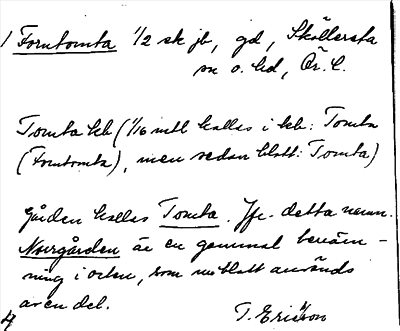 1 Forntomta 1/2 sk jb, gd, Sköllersta
sn o. hd, Ör. l.
Tomta kb (1/16 mtl kallas i kb: Tomta
(Forntomta), men sedan blott: Tomta)
Gården kallas Tomta. Jfr detta namn.
Norrgården är en gammal benäm-
ning i orten, som nu blott används
av en del.
T. Ericson